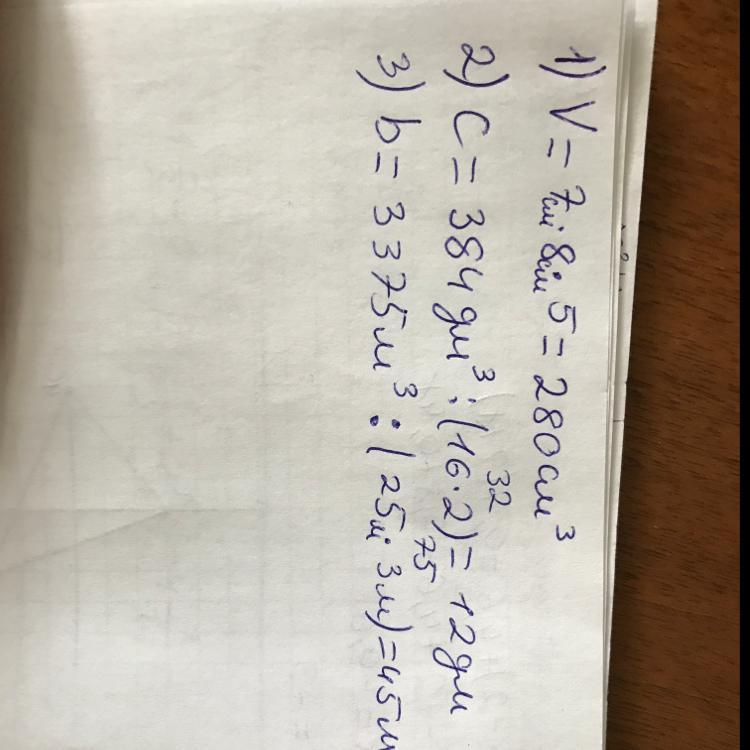 1) V = 7см · 8см · 5 = 280см³
2) C = 384дм³ : (16 · 2) = 12дм
32
3) b = 3375м³ : (25м · 3м) = 45м
75